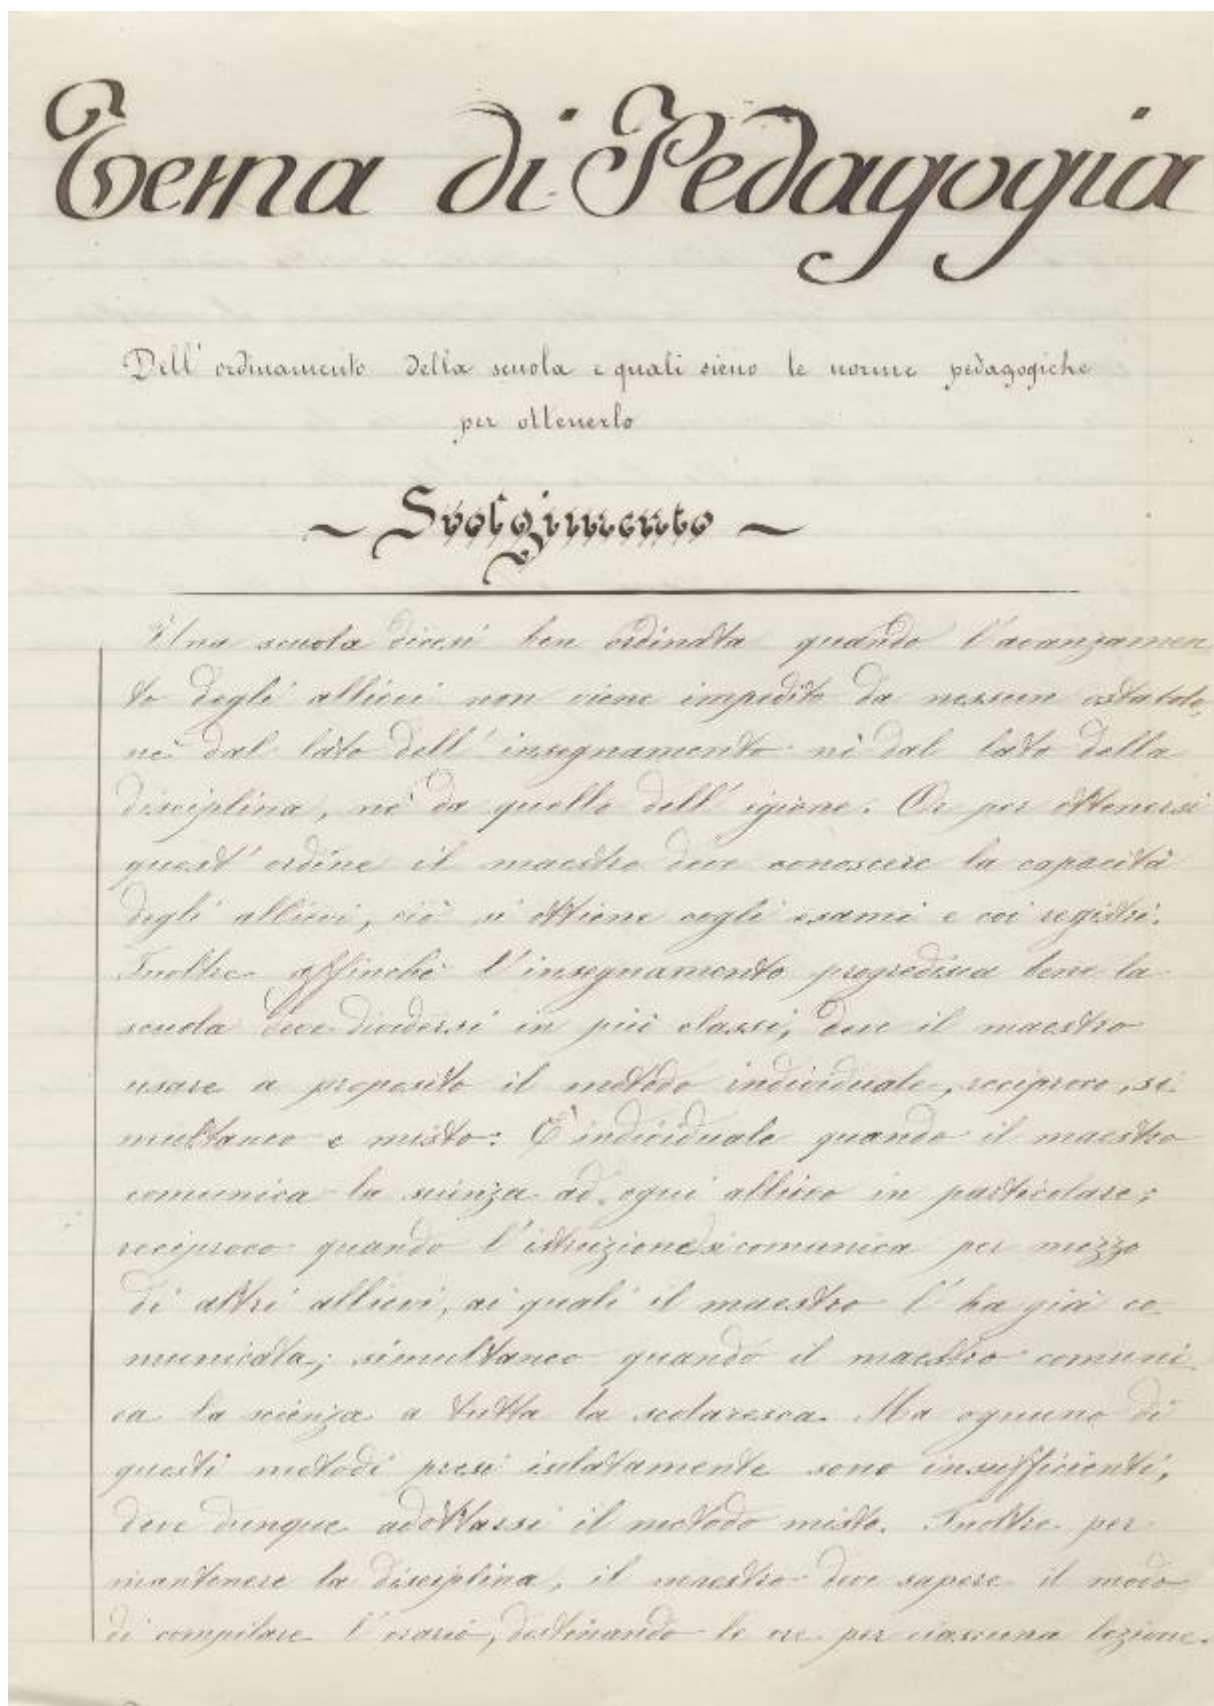 Tema di Pedagogia
Dell' ordinamento della scuola e quali sieno le norme pedagogiche
per ottenerlo
~ Svolgimento ~
Una scuola dicesi ben ordinata quando l'avanzamen
to degli allievi non viene impedito da nessun ostacolo,
nè dal lato dell' insegnamento nè dal lato della
disciplina, nè da quello dell' igiene. Or per ottenersi
quest' ordine il maestro deve conoscere la capacità
degli allievi, ciò si ottiene cogli esami e coi registri.
Inoltre affinchè l'insegnamento progredisca bene la
scuola deve dividersi in più classi, deve il maestro
usare a proposito il metodo individuale, reciproco, si
multaneo e misto: È individuale quando il maestro
comunica la scienza ad ogni allievo in particolare;
reciproco quando l'istruzione si comunica per mezzo
di altri allievi, ai quali il maestro l' ha già co
municata; simultaneo quando il maestro comuni
ca la scienza a tutta la scolaresca. Ma ognuno di
questi metodi presi isolatamente sono insufficienti,
deve dunque adottarsi il metodo misto. Inoltre per
mantenere la disciplina, il maestro deve sapere il modo
di compilare l' orario, destinando le ore per ciascuna lezione.